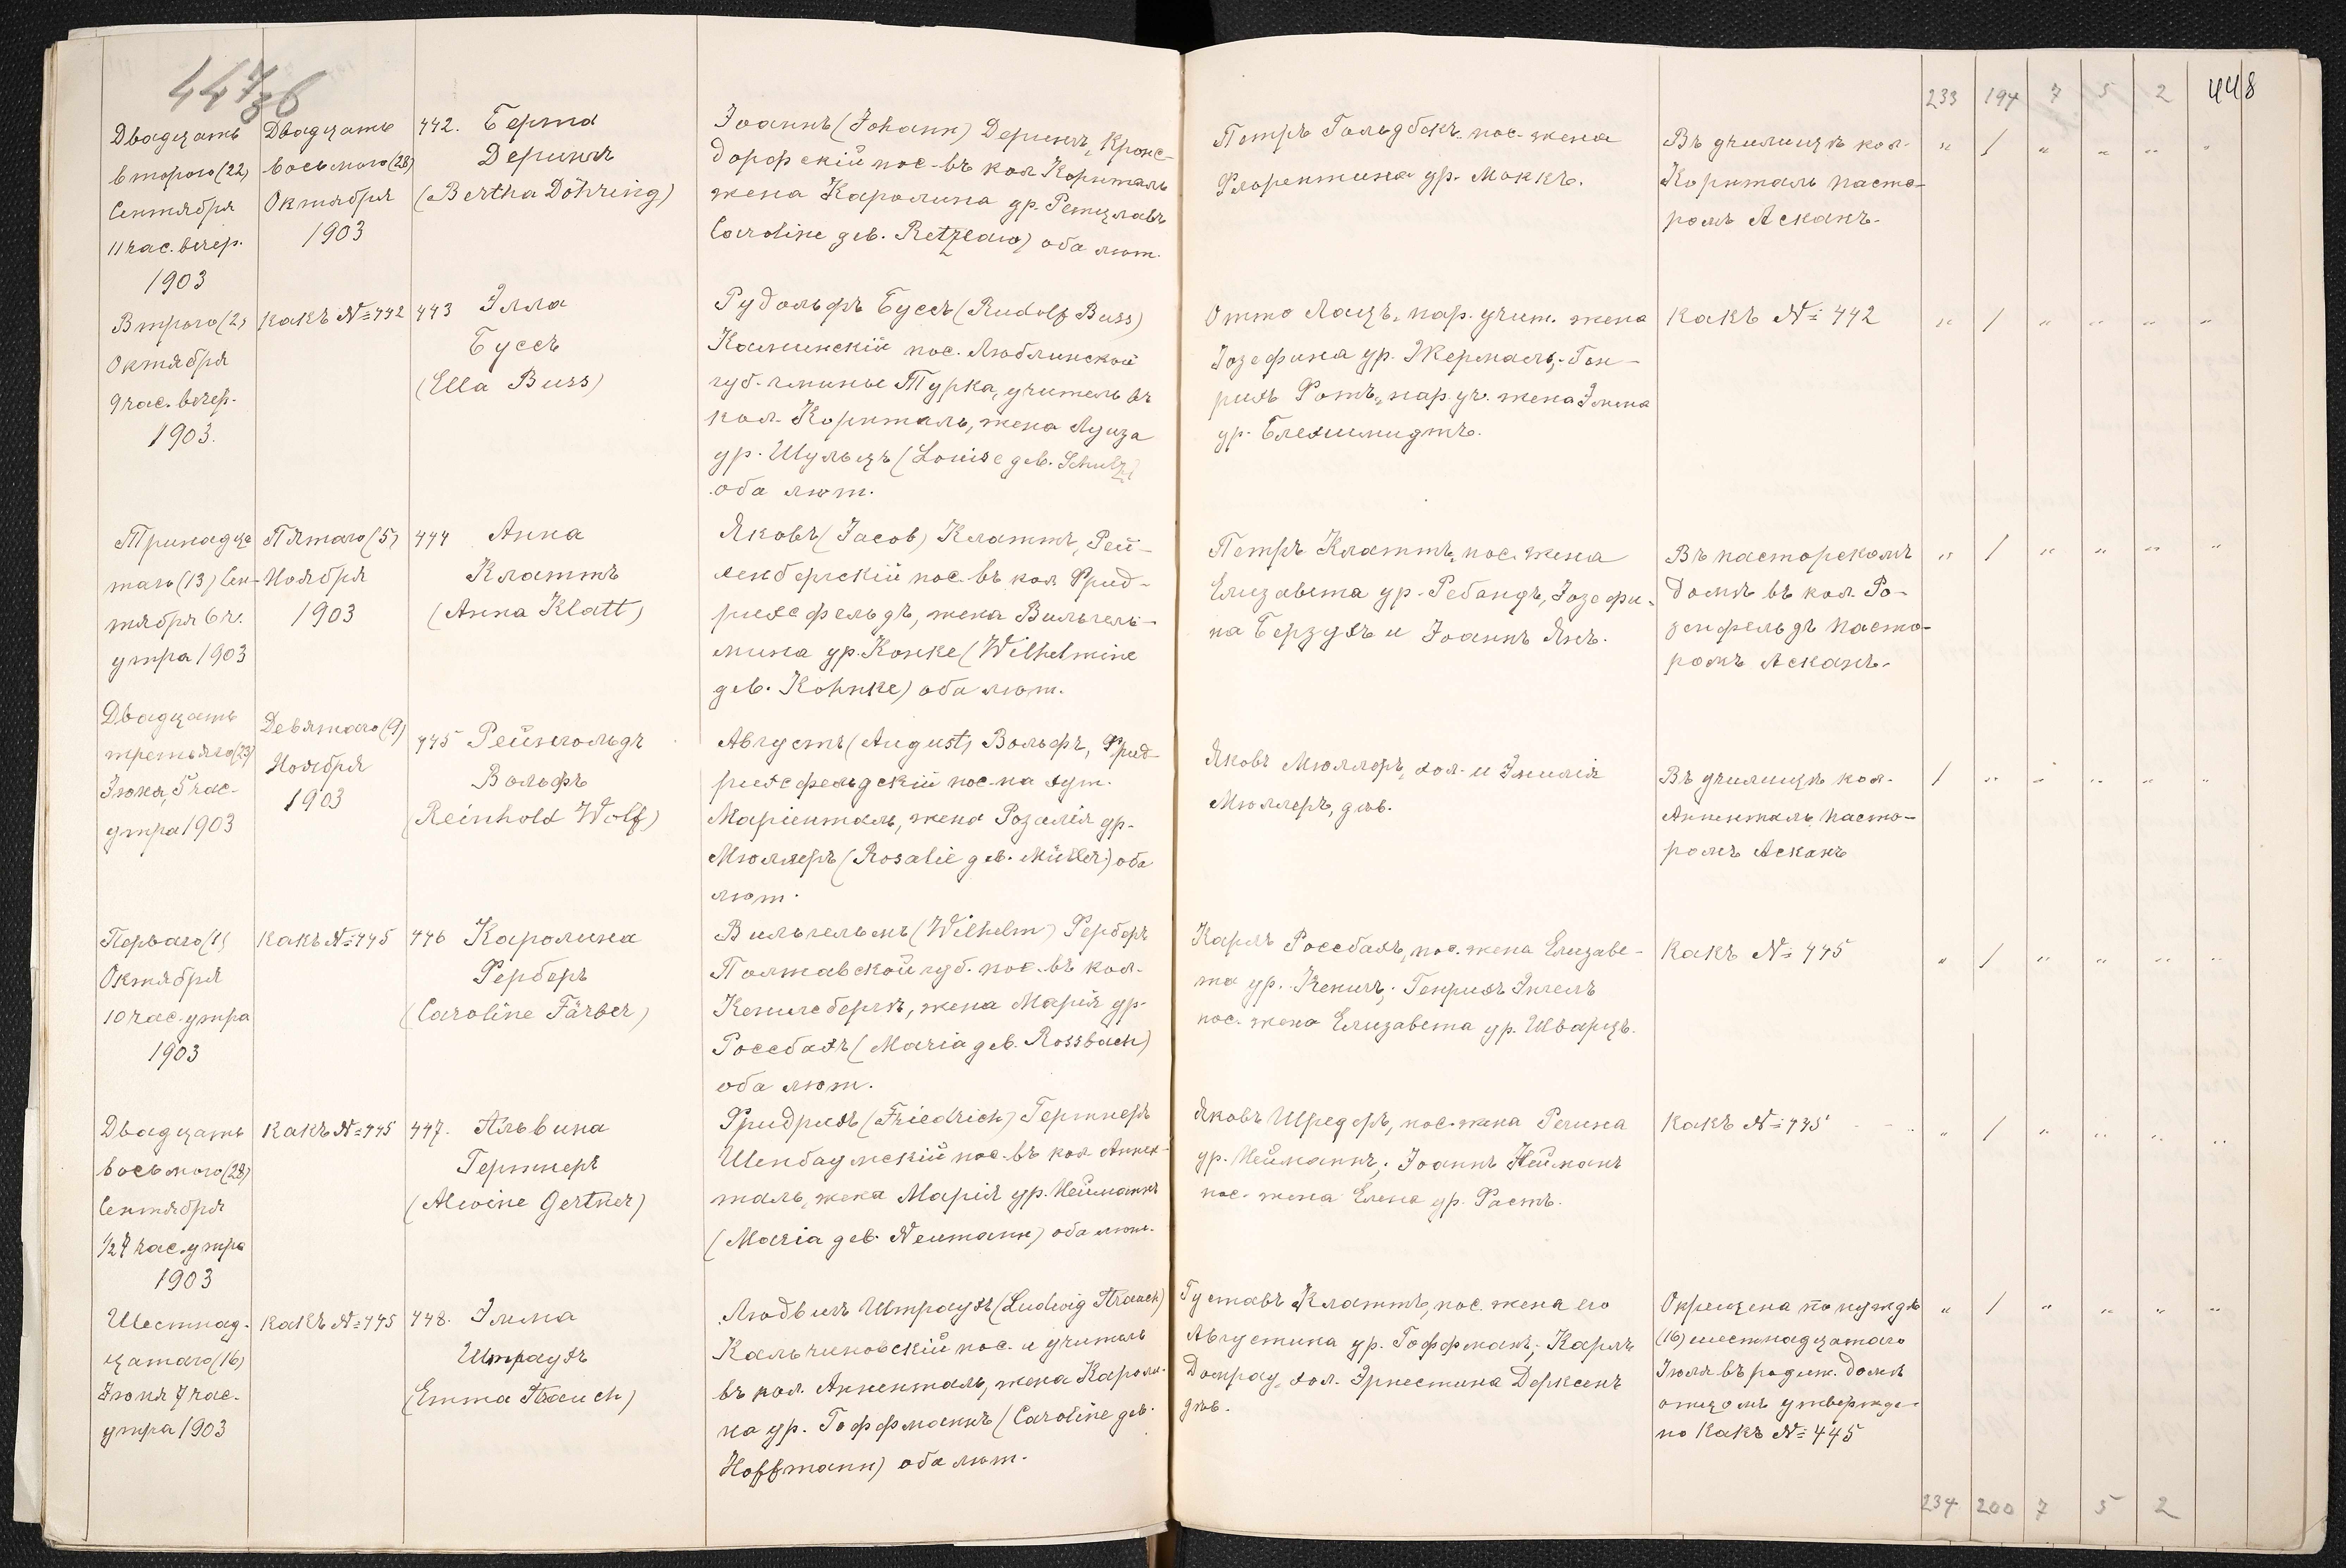 447
36
233 194 7 5 2 448
Двадцать
второго (22)
Сентября
11 час. вечер.
1903
Двадцать
восьмого (28)
Октября
1903
442. Берта
Дерингъ
(Bertha Döhring)
Іоаннъ (Johann) Дерингъ, Кронс-
дорфскій пос. въ кол. Корнталь
жена Каролина ур. Ретцлавъ
Caroline geb. Retzlaw) оба лют.
Петръ Гольдбекъ, пос. жена
Флорентина ур. Моккъ.
Въ училищѣ кол.
Корнталь пасто-
ромъ Асканъ.
„ 1 „ „ „ „
Втораго (2)
Октября
9 час. вечер.
1903.
какъ № 442
443 Элла
Буссъ
(Ella Buss)
Рудольфъ Буссъ (Rudolf Buss)
Каминскій пос. Люблинской
губ. гмины Турка, учитель въ
кол. Корнталь, жена Луиза
ур. Шульцъ (Louise geb. Schulz)
оба лют.
Отто Лацъ, нар. учит. жена
Іозефина ур. Жермаль; Ген-
рихъ Ротъ, нар. уч. жена Эмма
ур. Блехшмидтъ.
какъ № 442
„ 1 „ „ „ „
Тринадца
таго (13) Сен-
тября 6 ч.
утра 1903
Пятаго (5)
Ноября
1903
444 Анна
Клаттъ
(Anna Klatt)
Яковъ (Jacob) Клаттъ, Рей-
хенбергскій пос. въ кол. Фрид-
рихсфельдъ, жена Вильгель-
мина ур. Конке (Wilhelmine
geb. Kohnke) оба лют.
Петръ Клаттъ, пос. жена
Елизавета ур. Ребандъ, Іозефи-
на Берзухъ и Іоаннъ Янъ.
Въ пасторскомъ
домѣ въ кол. Ро-
зенфельдъ пасто-
ромъ Асканъ.
„ 1 „ „ „ „
Двадцать
третьяго (23)
Іюня, 5 час.
утра 1903
Девятаго (9)
Ноября
1903
445 Рейнгольдъ
Вольфъ
(Reinhold Wolf)
Августъ (August) Вольфъ, Фрид-
рихсфельдскій пос. на хут.
Маріенталь, жена Розалія ур.
Мюллеръ (Rosalie geb. Müller) оба
лют.
Яковъ Мюллеръ, хол. и Эмилія
Мюллеръ, дѣв.
Въ училищѣ кол.
Анненталь пасто-
ромъ Асканъ
1 „ „ „ „ „
Перваго (1)
Октября
10 час. утра
1903
какъ № 445
446 Каролина
Ферберъ
(Caroline Färber)
Вильгельмъ (Wilhelm) Ферберъ
Полтавской губ. пос. въ кол.
Кенигсбергъ, жена Марія ур.
Россбахъ (Maria geb. Rossbach)
оба лют.
Карлъ Россбахъ, пос. жена Елизаве-
та ур. Кенигъ; Генрихъ Энгель
пос. жена Елизавета ур. Шварцъ.
какъ № 445
„ 1 „ „ „ „
Двадцать
восьмого (28)
Сентября
½ 7 час. утра
1903
какъ № 445
447. Альвина
Гертнеръ
(Alwine Gertner)
Фридрихъ (Friedrich) Гертнеръ
Шенбаумскій пос. въ кол. Аннен-
таль, жена Марія ур. Нейманнъ
(Maria geb. Neumann) оба лют.
Яковъ Шредеръ, пос. жена Регина
ур. Нейманнъ; Іоаннъ Нейманъ
пос. жена Елена ур. Фастъ.
какъ № 445
„ 1 „ „ „ „
Шестнад-
цатаго (16)
Іюня 7 час.
утра 1903
какъ № 445
448. Эмма
Штраухъ
(Emma Strauch)
Людвигъ Штраухъ (Ludwig Strauch)
Кальчиновскій пос. и учитель
въ кол. Анненталь, жена Кароли-
на ур. Гоффманнъ (Caroline geb.
Hoffmann) оба лют.
Густавъ Клаттъ, пос. жена его
Августина ур. Гоффманъ; Карлъ
Домрау, хол. Эрнестина Дерксенъ
дѣв.
Окрещена по нуждѣ
(16) шестнадцатаго
Іюля въ родит. домѣ
отцомъ утвержде-
но какъ № 445
„ 1 „ „ „ „
234 200 7 5 2